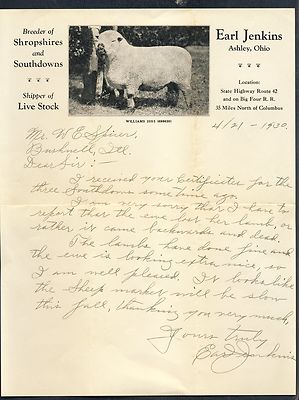 Breeder of
Shropshires
and
Southdowns
Shipper of
Live Stock
WILLIAMS
Earl Jenkins
Ashley, Ohio
Location:
State Highway Route 42
and on Big Four R. R.
35 Miles North of Columbus
4/21-1930.
Mr. W E Spicer,
Bushnell, Ill.
Dear Sir:-
I received your Certificates for the
three Southdowns some time ago.
I am very sorry that I have to
report that the ewe lost her lamb, or
rather it came backwards and dead.
The lambs have done fine and
the ewe is looking extra nice, so
I am well pleased. It looks like
the sheep market will be slow
this fall, thanking you very much,
Yours truly
Earl Jenkins